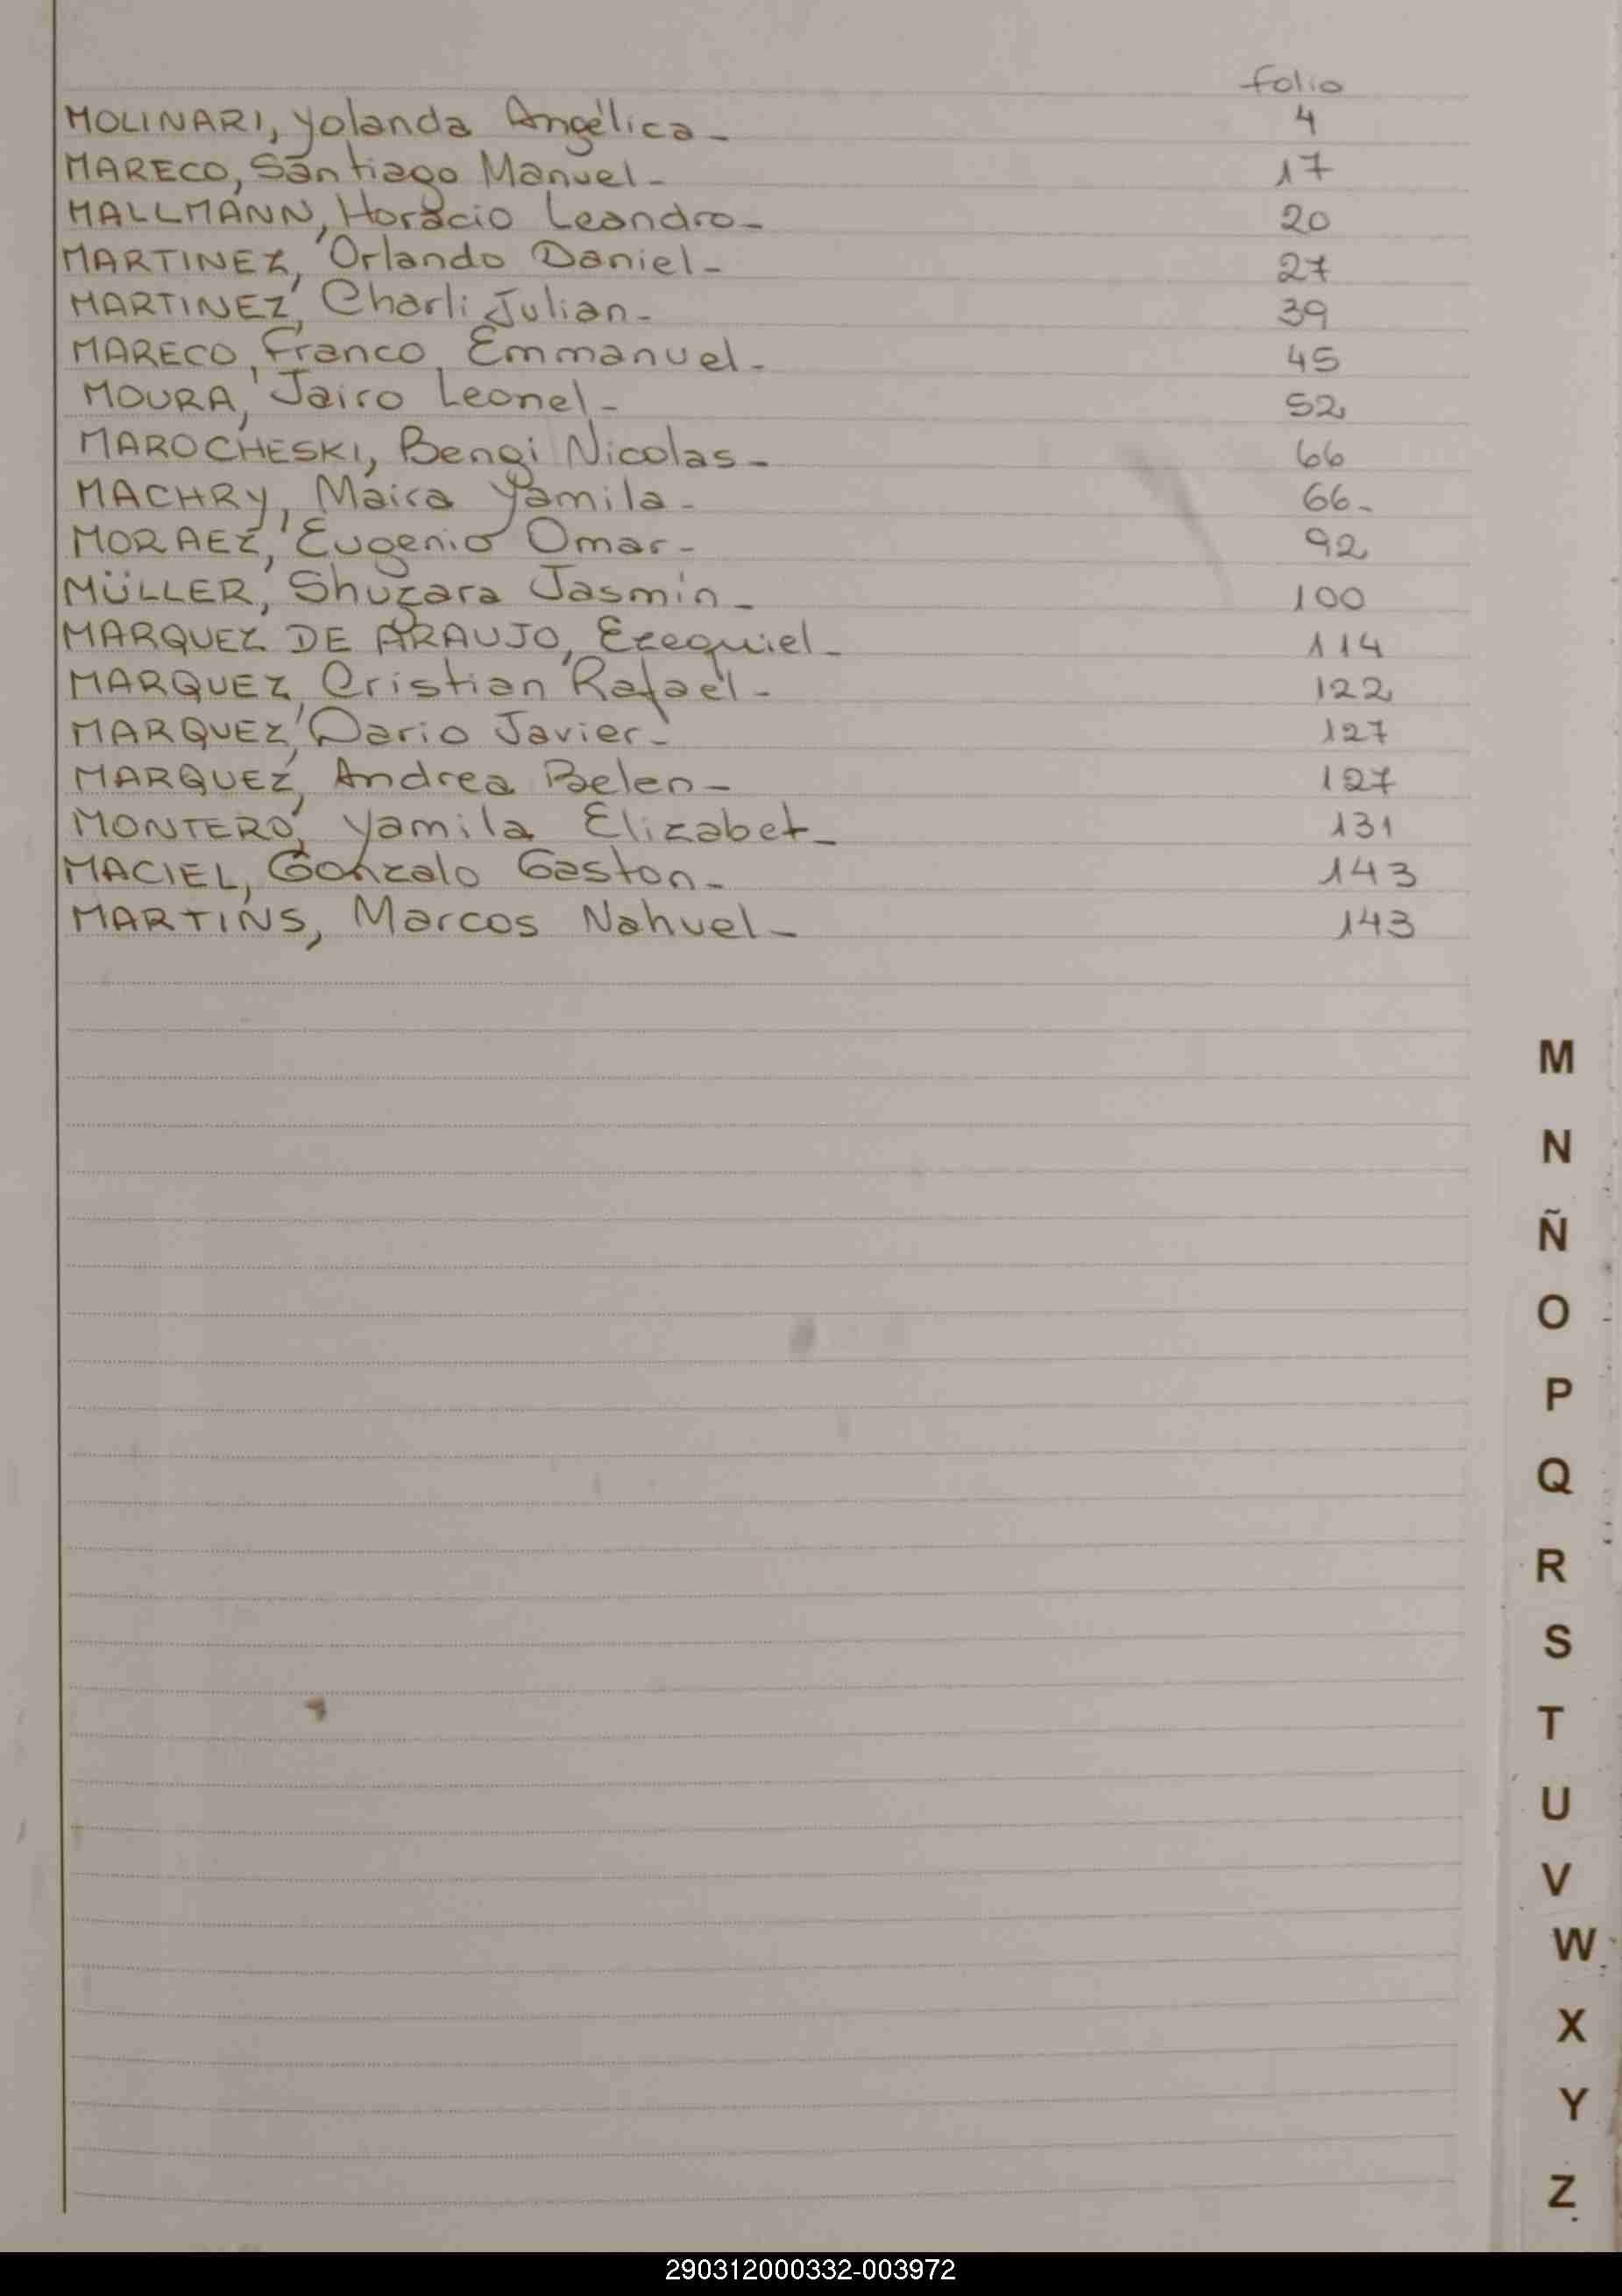 folio
MOLINARI, Yolanda Angélica- 4
MARECO, Santiago Manuel- 17
MALLMANN, Horacio Leandro- 20
MARTINEZ, Orlando Daniel- 27
MARTINEZ, Charli Julian- 39
MARECO, Franco Emmanuel- 45
MOURA, Jairo Leonel- 52
MAROCHESKI, Bengi Nicolas- 66
MACHRY, Maira Yamila- 66-
MORAEZ, Eugenio Omar- 92
MÜLLER, Shuzara Jasmin- 100
MARQUEZ DE ARAUJO, Ezequiel- 114
MARQUEZ, Cristian Rafael- 122
MARQUEZ, Dario Javier- 127
MARQUEZ, Andrea Belen- 127
MONTERO, Yamila Elizabet- 131
MACIEL, Gonzalo Gaston- 143
MARTINS, Marcos Nahuel- 143
M
N
Ñ
O
P
Q
R
S
T
U
V
W
X
Y
Z
290312000332-003972